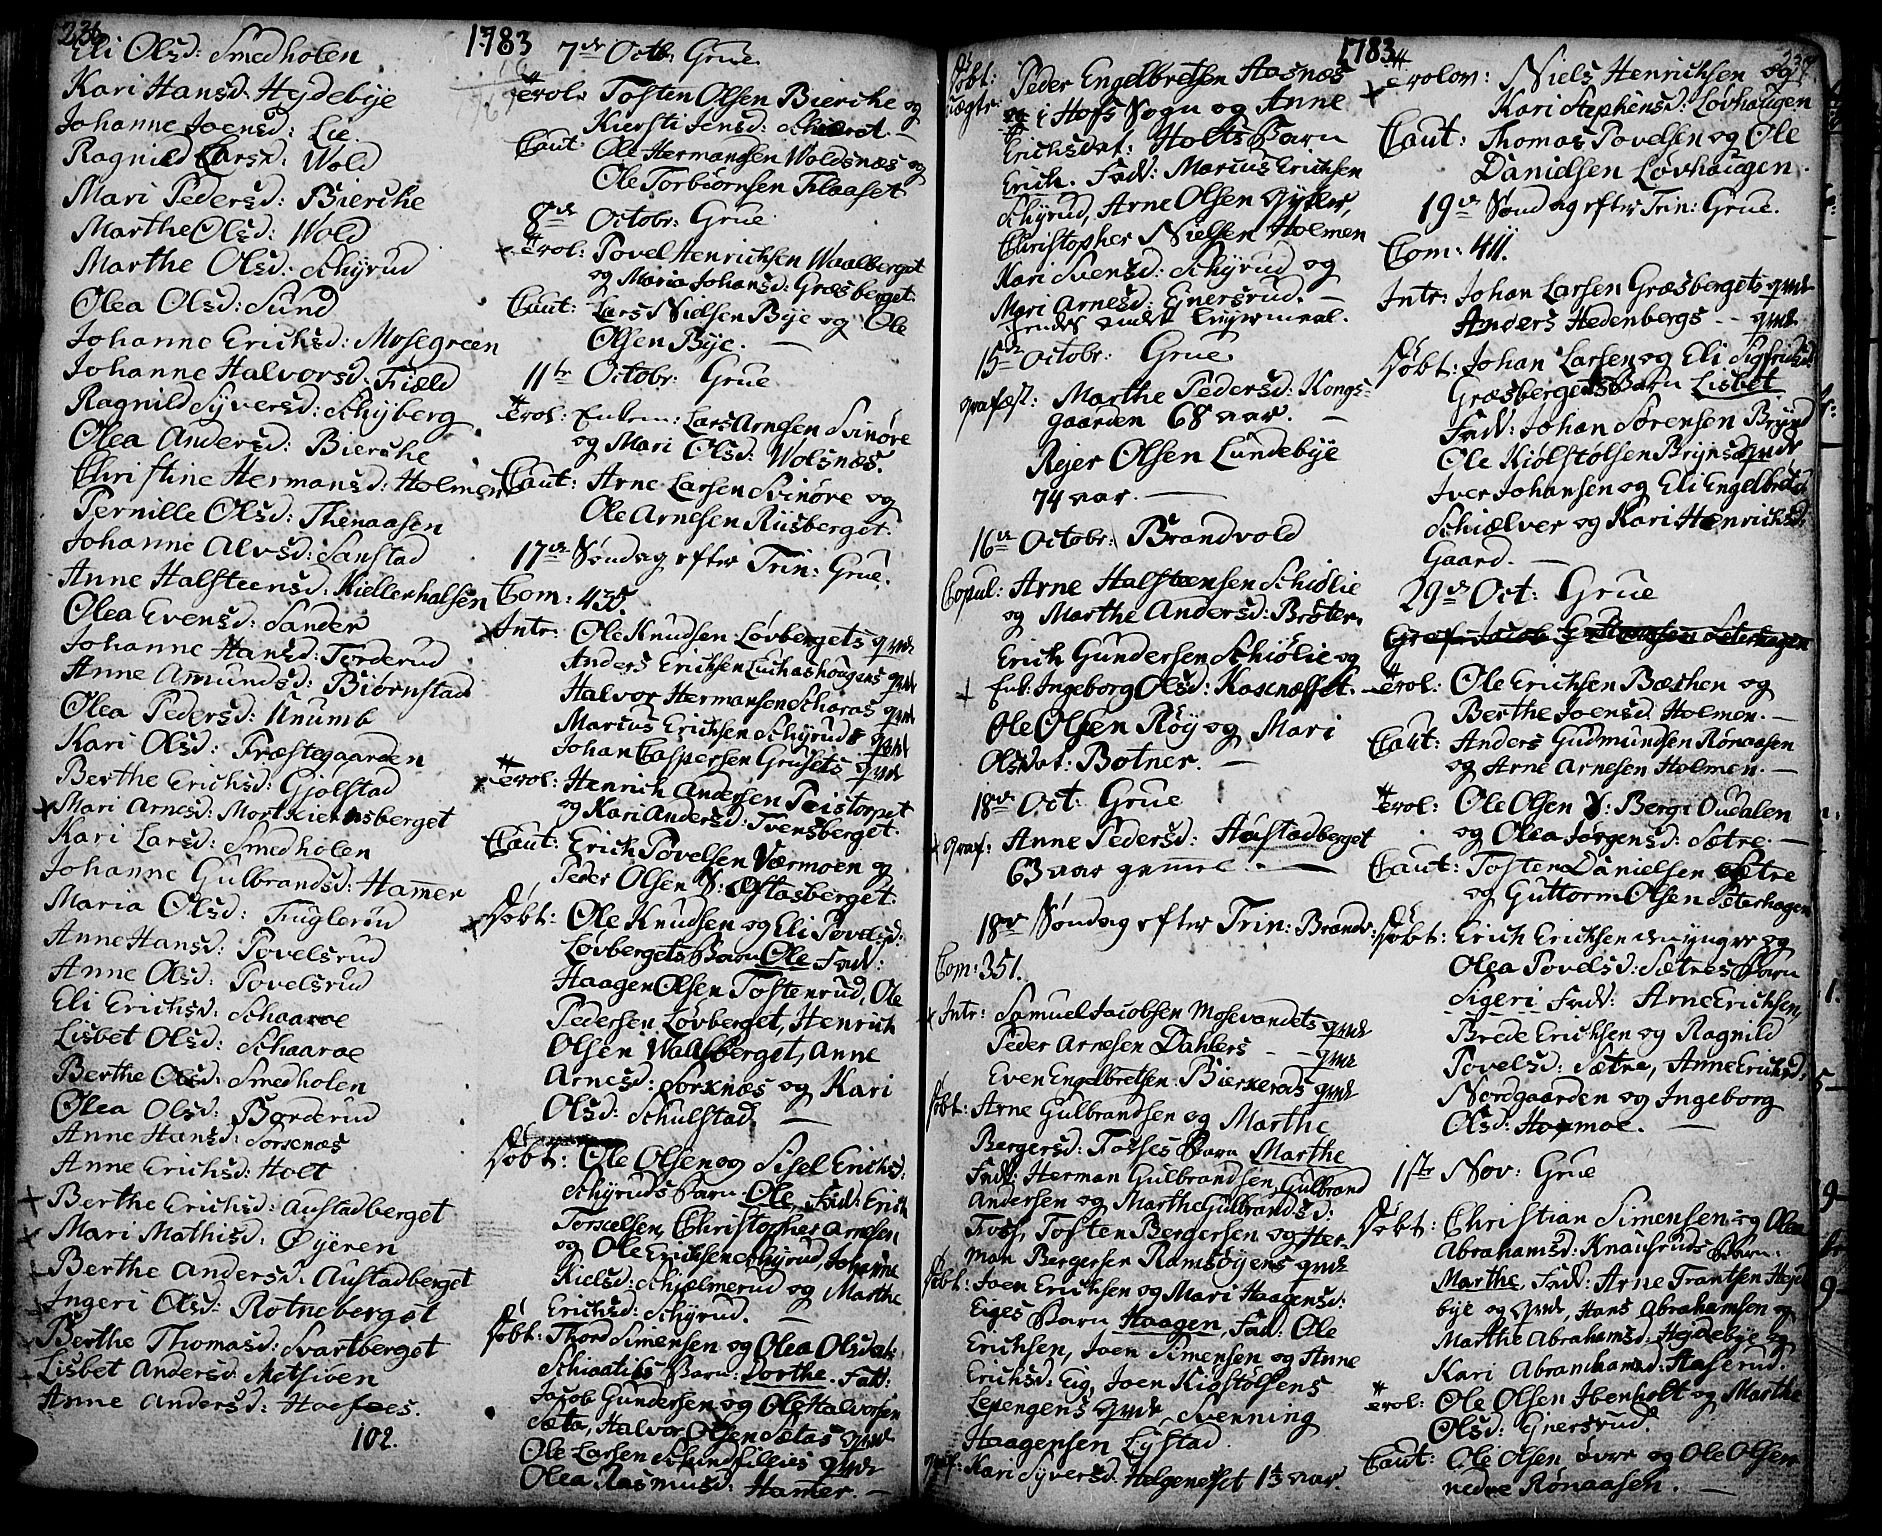 236
1783
Eli Olsd: Smedholen
Kari Hansd: Hejdebÿe
Johanne Joensd: Lie
Ragnild Larsd: Wold
Mari Pedersd: Bierche
Marthe Olsd: Wold
Marthe Olsd: Schÿrud
Olea Olsd: Sund
Johanne Erichsd: Mosegreen
Johanne Halvorsd: Fiæld
Ragnild Sÿversd: Schÿberg
Olea Andersd: Bierche
Christine Hermansd: Holmen
Pernille Olsd: Thenaasen
Johanne Alvsd: Sanstad
Anne Halsteensd: Kiellerhalsen
Olea Evensd: Sander
Johanne Hansd: Torderud
Anne Amundsd: Biørnstad
Olea Pedersd: Unumb
Kari Olsd: Præstegaarden
Berthe Erichsd: Gjølstad
Mari Arnesd: Mortkiernsberget
Kari Larsd: Smedholen
Johanne Gulbrandsd: Hamer
Maria Olsd: Fuglerud
Anne Hansd: Povelsrud
Anne Olsd: Povelsrud
Eli Erichsd: Schaaroe
Lisbet Olsd: Schaaroe
Berthe Olsd: Smedholen
Olea Olsd: Borderud
Anne Hansd: Sorknæs
Anne Erichsd: Holt
Berthe Erichsd: Austadberget
Mari Mathisd: Øÿeren
Berthe Andersd: Austadberget
Ingeri Olsd: Rotneberget
Berthe Thomasd: Svartberget
Lisbet Andersd: Metsiven
Anne Andersd:
102.
7de Octbr: Grue
Trol: Tosten Olsen Bierche og
Kiersti Jensd: Schiæret.
Caut: Ole Hermansen Woldsnæs og
Ole Torbiørnsen Flaaset
8de Octobr: Grue
Trol: Povel Henrichsen Waalberget
og Maria Johansd: Græsberget.
Caut: Lars Nielsen Bÿe og Ole
Olsen Bÿe.
11te Octobr: Grue
Trol: Lars Arnesen Svinøre
og Mari Olsd: Wolsnæs.
Caut: Arne Larsen Svinøre og
Ole Arnesen Riisberget.
17de Søndag efter Trin: Grue.
Com: 435.
Intr: Ole Knudsen Løvbergets qvde
Anders Erichsen Luchashougens qvde
Halvor Hermansen Scharas qvde
Marcus Erichsen Schÿruds qvde
Johan Caspersen Grusets qvde
Trol: Henrich Andersen Peistorpet
og Kari Andersd: Tvensberget.
Caut: Erich Povelsen Værmoen og
Peder Olsen N: Øftasberget.
Døbt: Ole Knudsen og Eli Povelsd:
Løvbergets Barn Ole Fad:
Haagen Olsen Tostenrud, Ole
Pedersen Løvberget, Henrich
Olsen Waalberget, Anne
Arnesd: Sorknæs og Kari
Olsd: Schulstad.
Døbt: Ole Olsen og Sisel Erichsd:
Schÿruds Barn Ole, Fad: Erich
Torkelsen, Christopher Arnesen
og Ole Erichsen Schÿrud, Johanne
Nielsd: Schiælmerud og Marthe
Erichsd: Schÿrud.
Døbt: Thord Simensen og Olea Olsdat:
Schiaatiis Barn: Dorthe. Fad:
Jacob Gundersen og Ole Halvorsen
Sæta, Halvor Olsen Sætas qvde
Ole Larsen Schindfillies qvde
Olea Rasmusd: Hamer.
1783
237
Døbt: Peder Engelbretsen Aasnæs
i Hofs Sogn og Anne
Erichsdat: Holts Barn
Erich. Fad: Marcus Erichsen
Schÿrud, Arne Olsen Gÿller,
Christopher Nielsen Holmen
Kari Svensd: Schÿrud og
Mari Arnesd: Enersrud.
15de Octobr: Grue
Marthe Pedersd: Kongs-
gaarden 68 aar.
Rejer Olsen Lundebÿe
74 aar.
16de Octobr: Brandvold
Copul: Arne Halsteensen Schiølie
og Marthe Andersd: Broten
Erich Gundersen Schiølie og
Enk: Ingeborg Olsd: Kasenæsset.
Ole Olsen Røÿ og Mari
Olsdat: Botner.
18de Oct: Grue
Graf: Anne Pedersd: Austadberget
63 aar gamel.
18de Søndag efter Trin: Brandv:
Com: 351.
Intr: Samuel Jacobsen Mosevandets qvde
Peder Arnesen Dahlers qvde
Even Engelbretsen Bierkeraas qvde
Døbt: Arne Gulbrandsen og Marthe
Bergersd: Fosses Barn Marthe
Fad: Herman Gulbrandsen, Gulbrand
Andersen og Marthe Gulbrandsd:
Foss, Tosten Bergersen og Her-
man Bergersen Ramsøÿens qvde
Døbt: Joen Erichsen og Mari Haagensd:
Eiges Barn Haagen, Fad: Ole
Erichsen, Joen Simensen og Anne
Erichsd: Eig, Joen Kiøstolsens
Lepengens qvde, Svenning
Haagensen Lÿstad.
Graf: Kari Sÿversd: Helgeneset 1½ aar.
Trolov: Niels Henrichsen og
Kari Stephensd: Løvhaugen
Caut: Thomas Povelsen og Ole
Danielsen Løvhaugen.
19de Søndag efter Trin: Grue.
Com: 411.
Intr: Johan Larsen Græsbergets qvde
Anders Hedenbergs qvde
Døbt: Johan Larsen og Eli Sigfridsd:
Græsbergets Barn Lisbet
Fad: Johan Sørensen Brÿnd
Ole Kiølstolsen Brÿnds qvde
Iver Johansen og Eli Engelbretsd:
Schiælver og Kari Henrichsd:
Gaard.
29de Oct: Grue
Trol: Ole Erichsen Bæchen og
Berthe Joensd Holmen.
Caut: Anders Gudmundsen Rønaasen
og Arne Arnesen Holmen.
Trol: Ole Olsen Ø: Berg i Oudalen
og Olea Jørgensd: Sætre.
Caut: Tosten Danielsen Sætre
og Guttorm Olsen Sæterhagen
Døbt: Erich Erichsen den ÿngre og
Olea Povelsd: Sætres Barn
Sigeri Fad: Arne Erichsen,
Brede Erichsen og Ragnild
Povelsd: Sætre, Anne Erichsd:
Nordgaarden og Ingeborg
Olsd: Hofmoe.
1ste Nov: Grue
Døbt: Christian Simensen og Olea
Abrahamsd: Knausruds Barn
Marthe Fad: Arne Frantsen Hejde
bÿe og qvde, Hans Abrahamsen og
Marthe Abrahamsd: Hejdebÿe og
Kari Abrahamsd: Haserud.
Trol: Ole Olsen Ibenholt og Marthe
Olsd: Enersrud.
Caut: Ole Olsen Øvre og Ole Olsen
nedre Rønaasen.